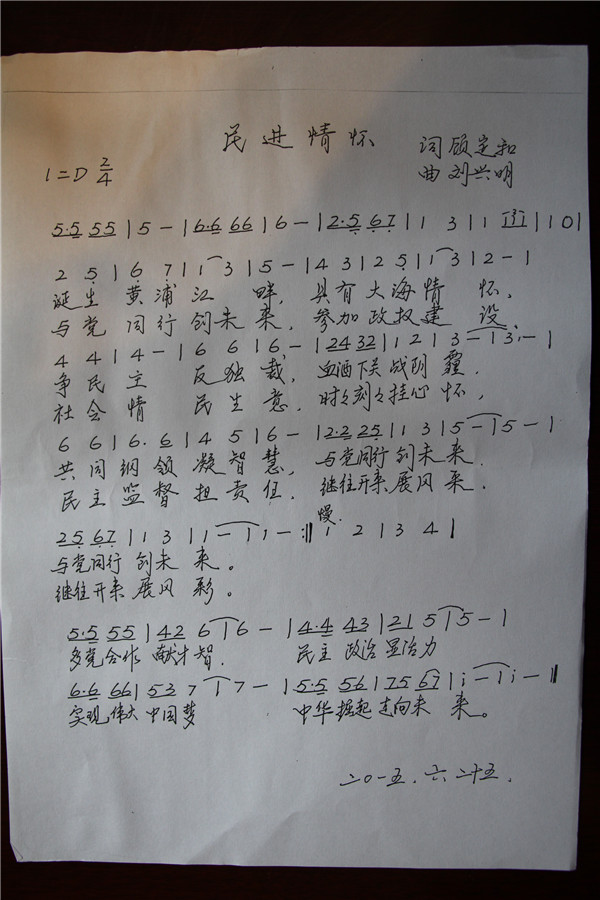 民进情怀
词 顾定和
1=D 2/4
曲 刘兴明
5·5 55 | 5 - | 6·6 66 | 6 - | 2·5 67 | 1 3 | 1 i i i | 1 0 |
2 5 | 6 7 | 1 3 | 5 - | 4 3 | 2 5 | 1 3 | 2 - |
诞生黄浦江畔，具有大海情怀，
与党同行创未来，参加政权建设，
4 4 | 4 - | 6 6 | 6 - | 24 32 | 1 2 | 3 - | 3 - |
争民主反独裁，血洒下关战阴霾．
社会情民生意，时々刻々挂心怀，
6 6 | 6· 6 | 4 5 | 6 - | 2·2 25 | 1 3 | 5 - | 5 - |
共同纲领凝智慧，与党同行创未来．
民主监督担责任，继往开来展风采．
慢．
25 67 | 1 3 | 1 - | 1 - :‖ 1 2 | 3 4 |
与党同行创未来。
继往开来展风彩。
5·5 55 | 42 6 | 6 - | 4·4 43 | 21 5 | 5 - |
多党合作献才智．民主政治显治力
6·6 66 | 53 7 | 7 - | 5·5 56 | 75 67 | i - | i - ‖
实现伟大中国梦 中华掘起走向未来。
二〇一五．六．二十五．